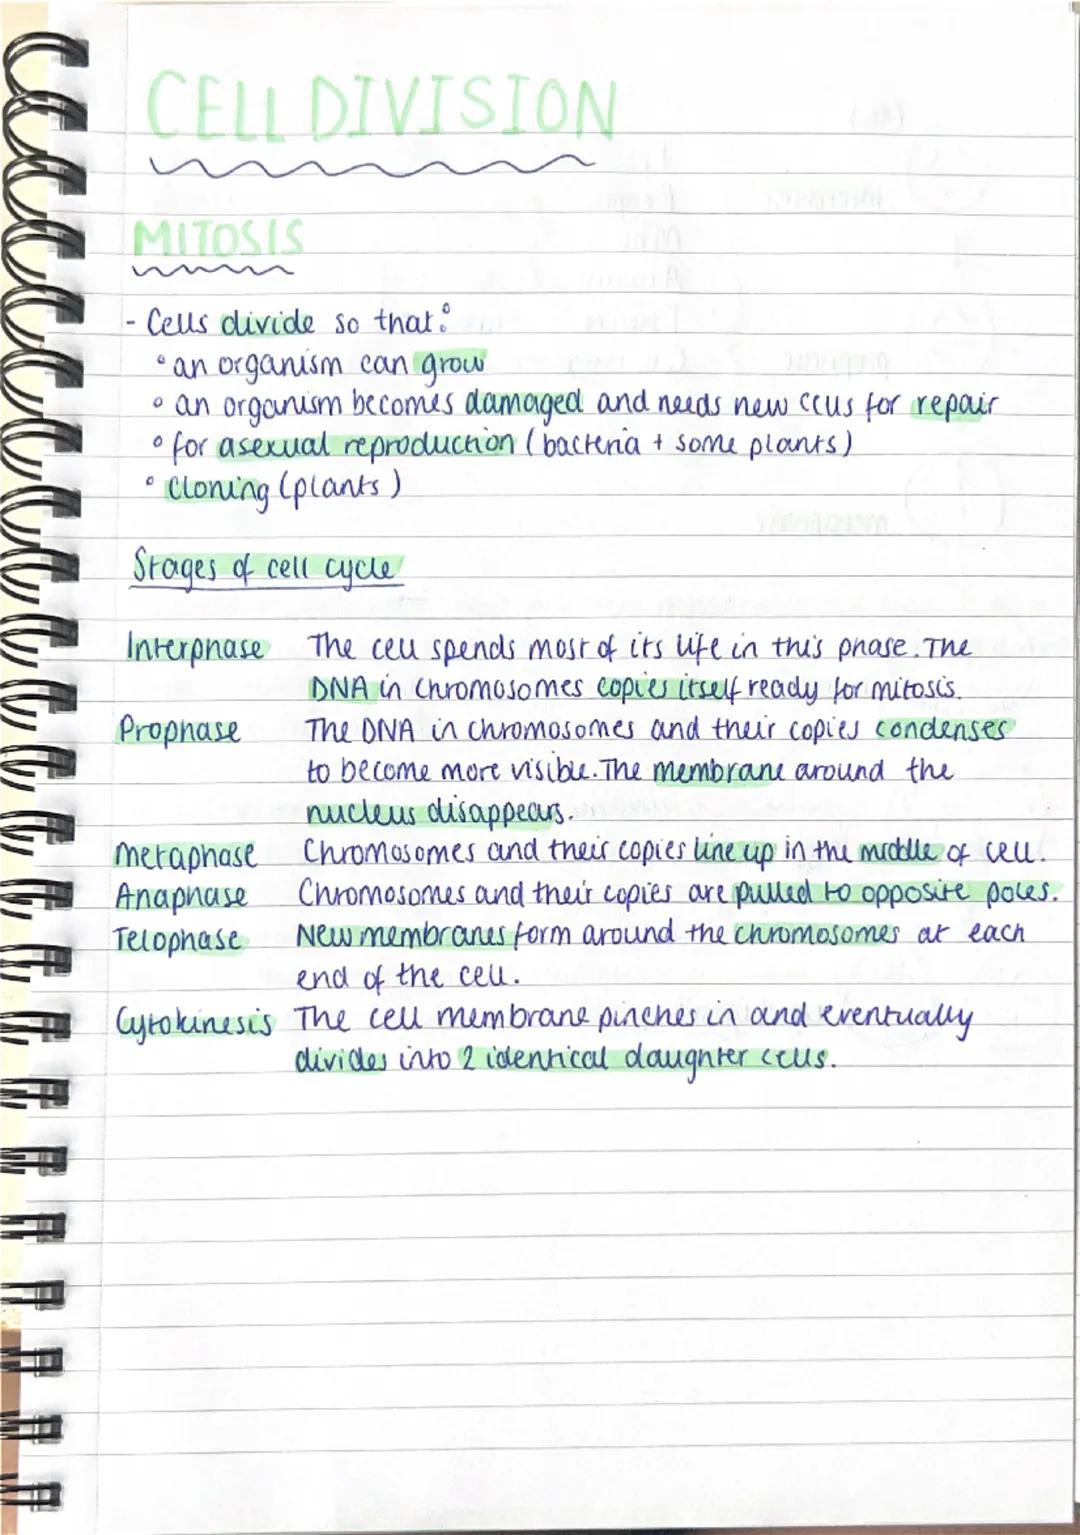 CELL DIVISION
MITOSIS
- Cells divide so that:
• an organism can grow
• an organism becomes damaged and needs new cells for repair
• for asexual reproduction (bacteria + some plants)
• Cloning (plants)
Stages of cell cycle
Interphase The cell spends most of its life in this phase. The
DNA in chromosomes copies itself ready for mitosis.
Prophase The DNA in chromosomes and their copies condenses
to become more visible. The membrane around the
nucleus disappears.
Metaphase Chromosomes and their copies line up in the middle of cell.
Anaphase Chromosomes and their copies are pulled to opposite poles.
Telophase New membranes form around the chromosomes at each
end of the cell.
Cytokinesis The cell membrane pinches in and eventually
divides into 2 identical daughter cells.